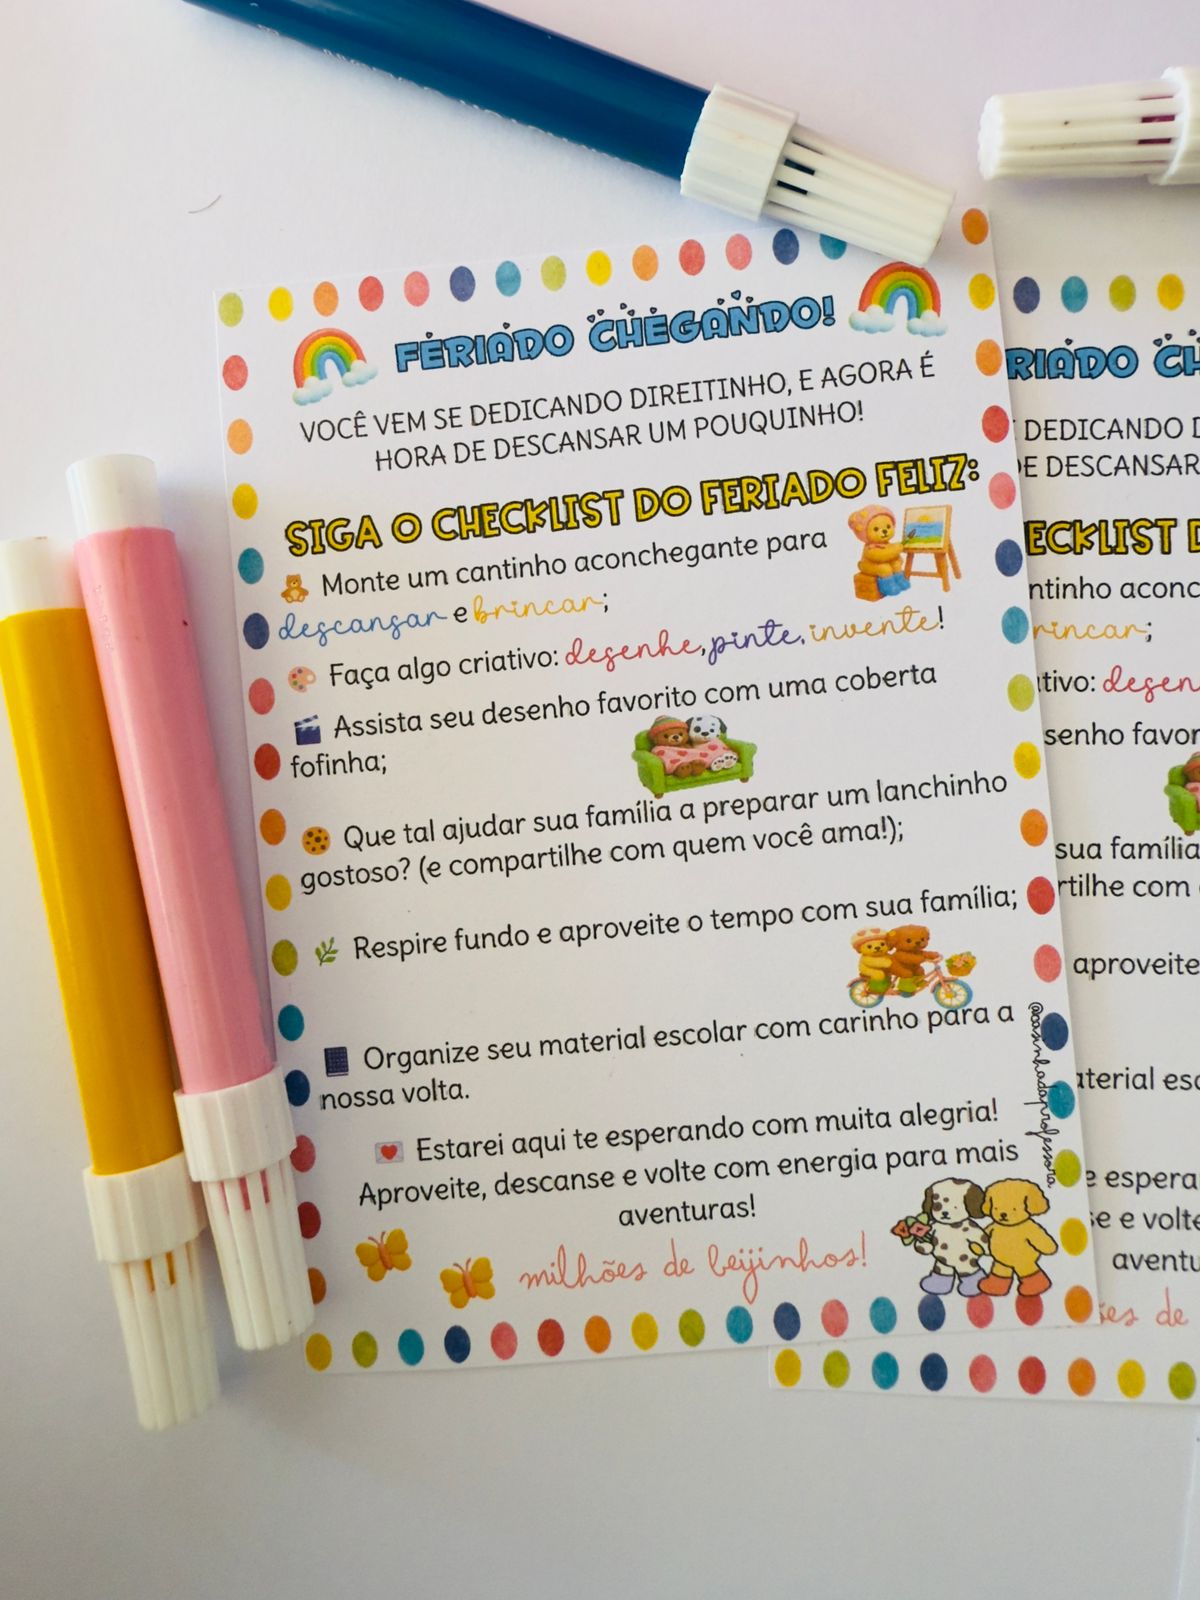 FERIADO CHEGANDO!
VOCÊ VEM SE DEDICANDO DIREITINHO, E AGORA É
HORA DE DESCANSAR UM POUQUINHO!
SIGA O CHECKLIST DO FERIADO FELIZ:
Monte um cantinho aconchegante para
descansar e brincar;
Faça algo criativo: desenhe, pinte, invente!
Assista seu desenho favorito com uma coberta
fofinha;
Que tal ajudar sua família a preparar um lanchinho
gostoso? (e compartilhe com quem você ama!);
Respire fundo e aproveite o tempo com sua família;
Organize seu material escolar com carinho para a
nossa volta.
Estarei aqui te esperando com muita alegria!
Aproveite, descanse e volte com energia para mais
aventuras!
milhões de beijinhos!
@coisinhadaprofessora
RIADO CH
DEDICANDO D
DE DESCANSAR
ECKLIST D
ntinho aconc
rincar;
tivo: desen
senho favor
sua família
rtilhe com
aproveite
aterial esc
e espera
se e volte
aventu
ões de